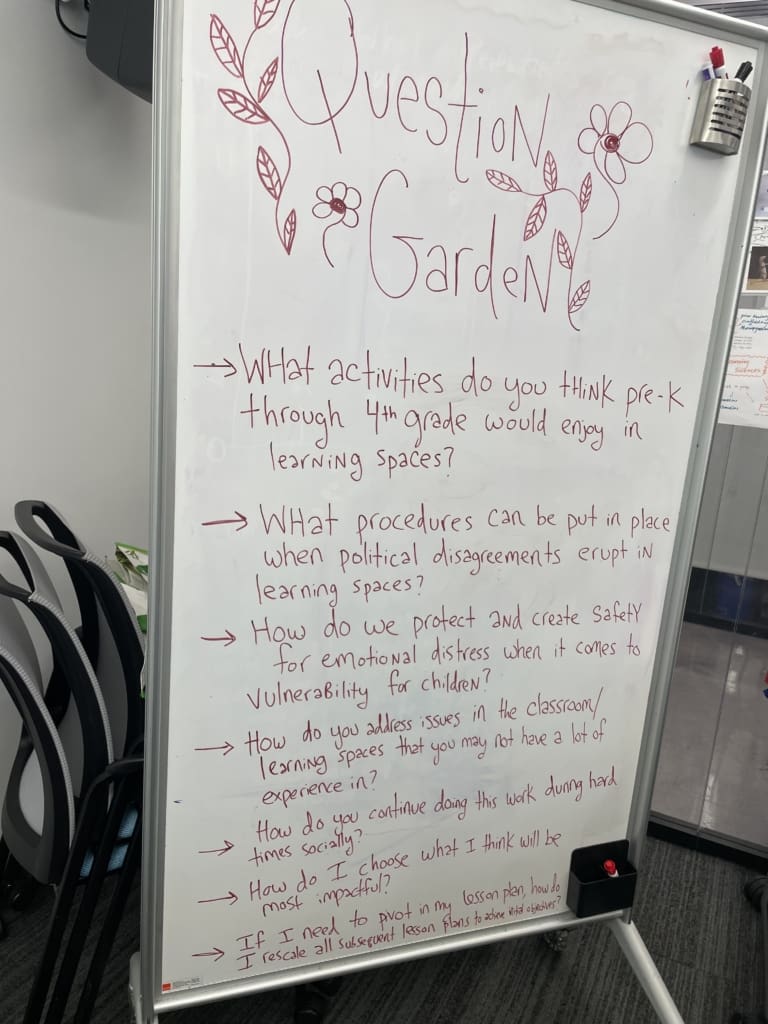 Question
Garden
→ What activities do you think pre-K
through 4th grade would enjoy in
learning spaces?
→ What procedures can be put in place
when political disagreements erupt in
learning spaces?
→ How do we protect and create safety
for emotional distress when it comes to
vulnerability for children?
→ How do you address issues in the classroom/
learning spaces that you may not have a lot of
experience in?
→ How do you continue doing this work during hard
times socially?
→ How do I choose what I think will be
most impactful?
→ If I need to pivot in my lesson plan, how do
I rescale all subsequent lesson plans to achieve vital objectives?